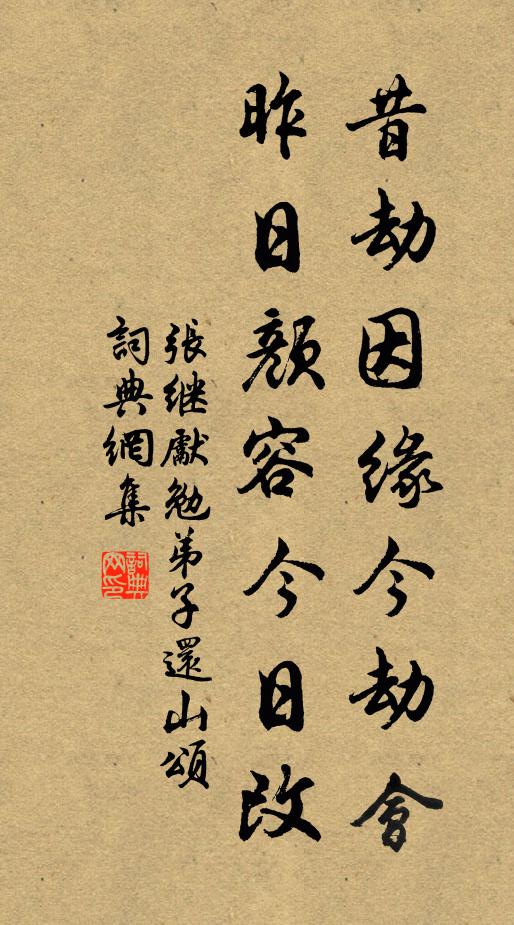 昔劫因緣今劫會
昨日顏容今日改
張继獻勉弟子還山頌
詞典網集
詞典网印